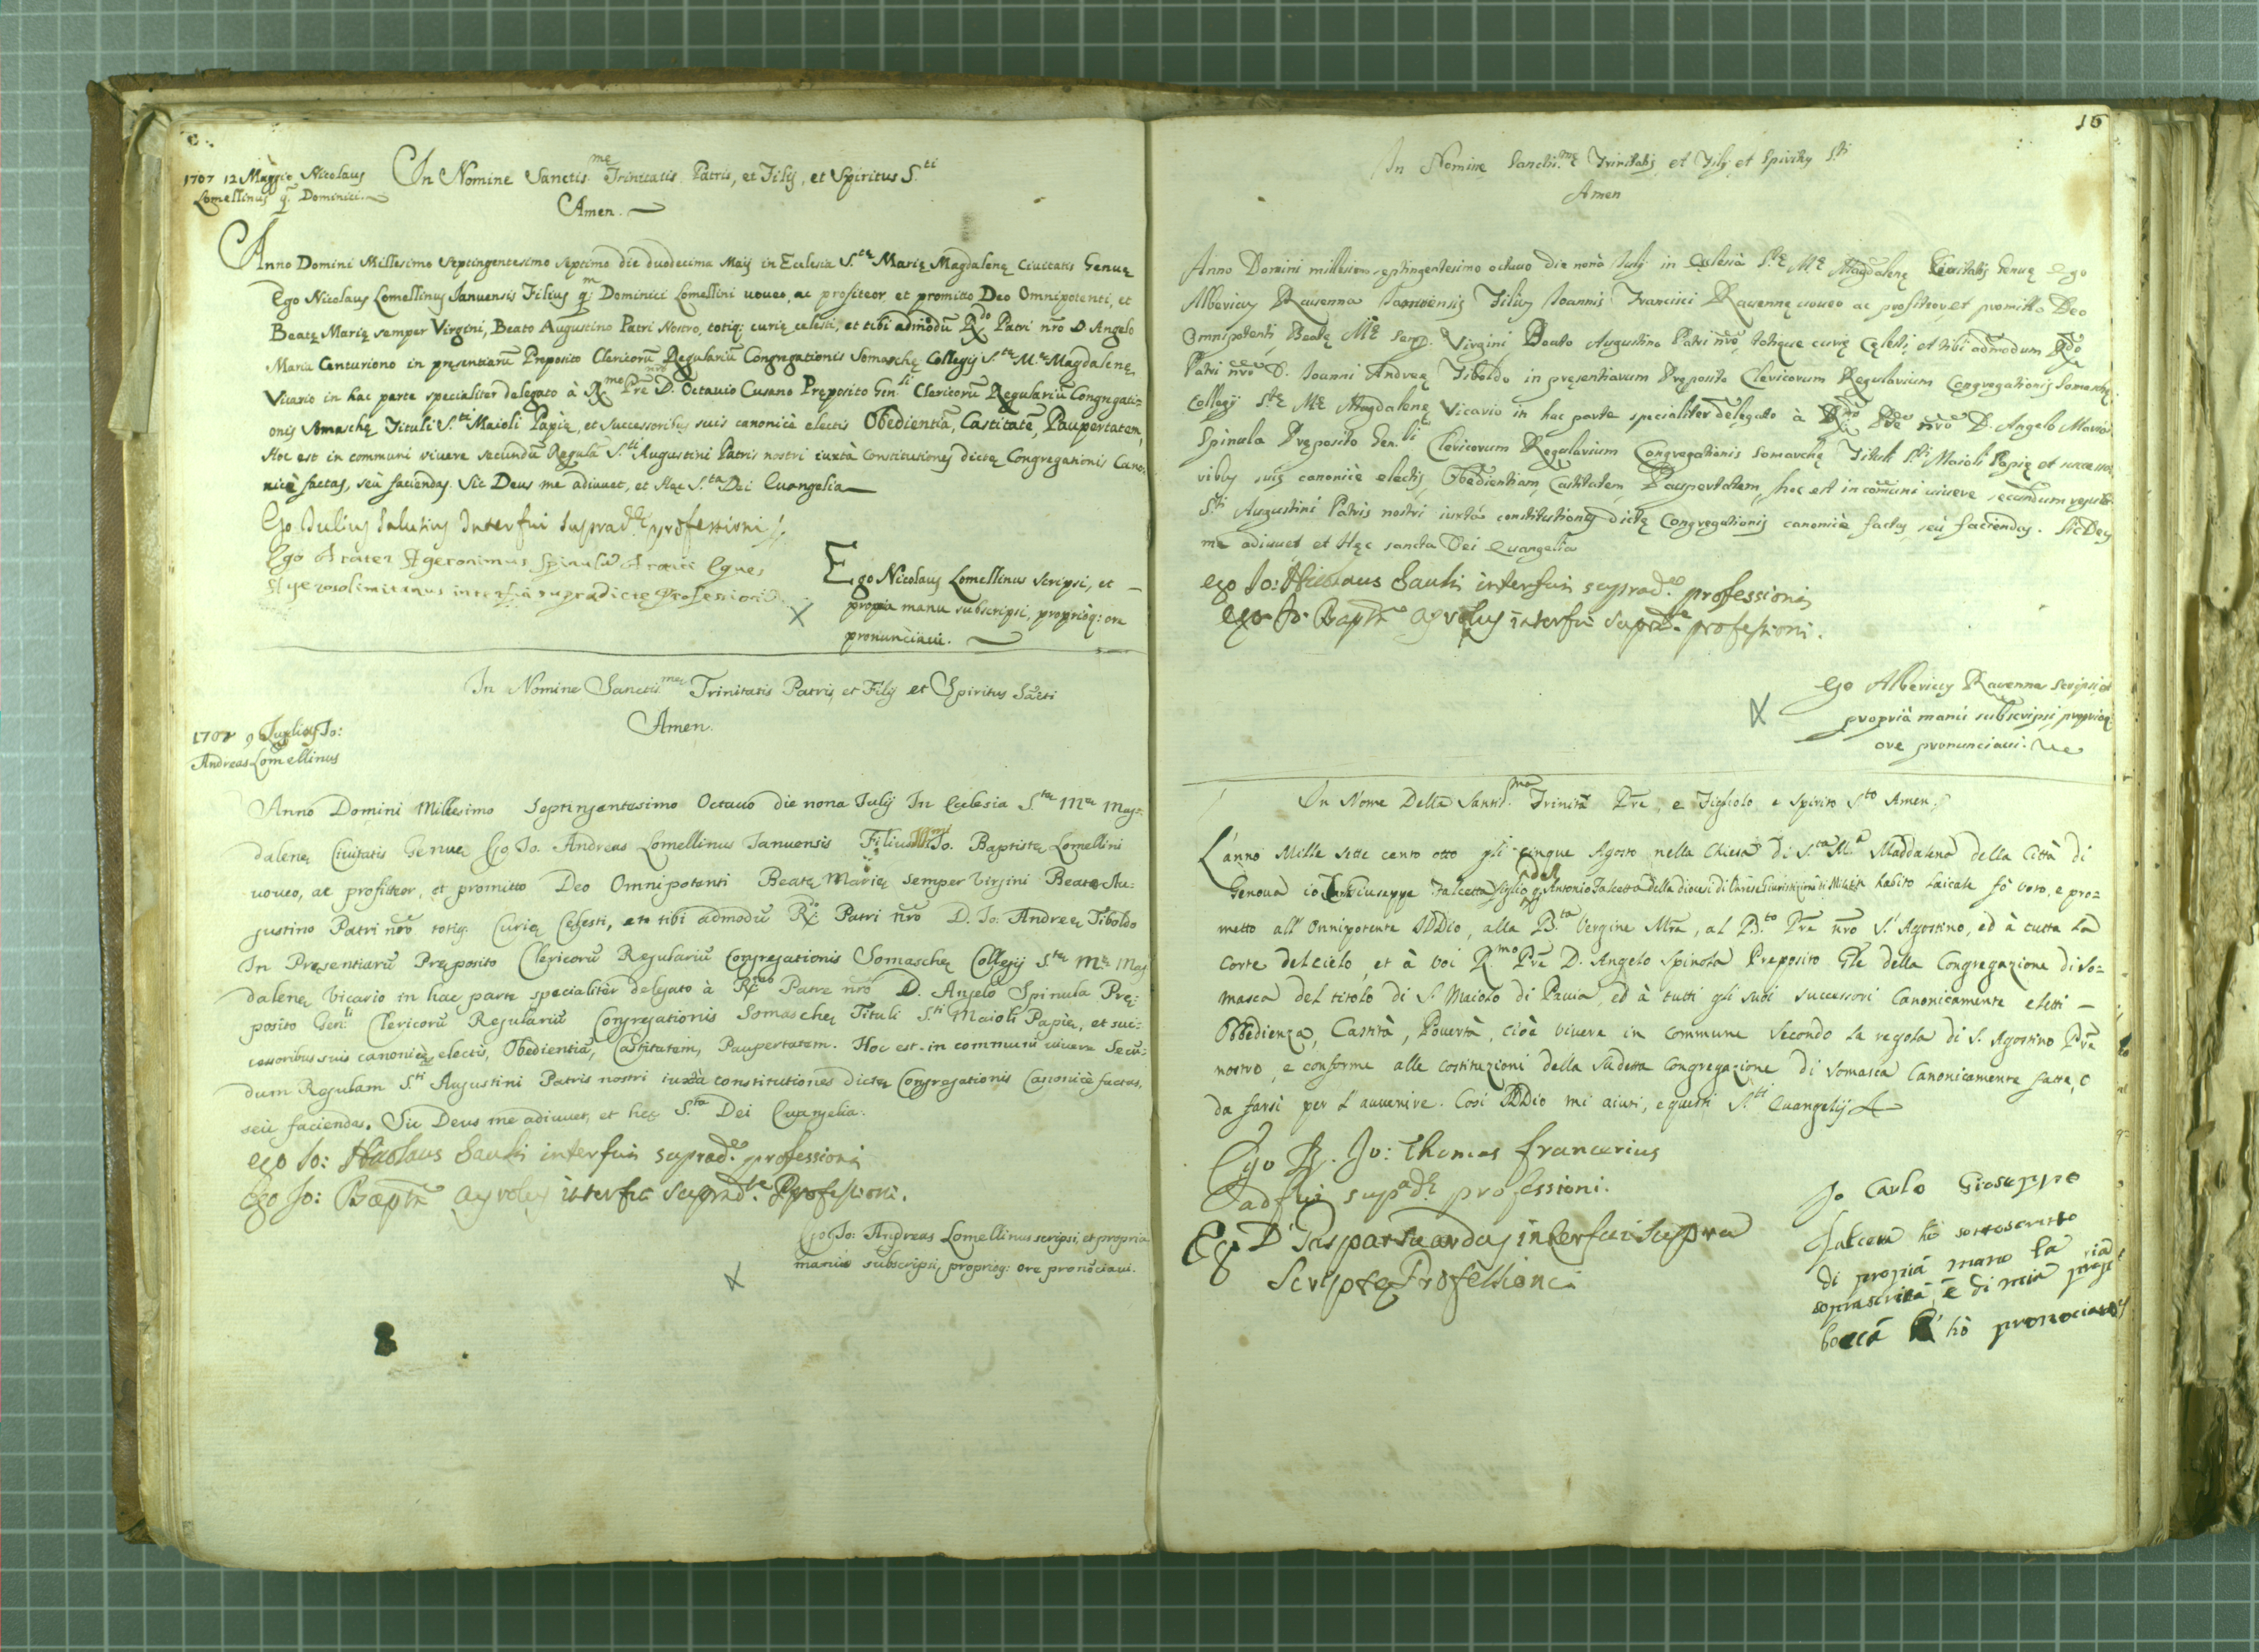 1707 12 Maggio Nicolaus
Lomellinus q. Dominici.
In Nomine Sanctis.mę Trinitatis Patris, et Filij, et Spiritus S.ti
Amen.
Anno Domini Millesimo Septingentesimo septimo die duodecima Maij in Ecclesia S.tę Marię Magdalenę Civitatis Genuę
Ego Nicolaus Lomellinus Januensis Filius q.m Dominici Lomellini uoueo, ac profiteor, et promitto Deo Omnipotenti, et
Beatę Marię semper Virgini, Beato Augustino Patri Nostro, totiq: curię celesti, et tibi admodũ R.do Patri nrõ D Angelo
Maria Centuriono in pręsentiarũ Preposito Clericorũ Regulariũ Congregationis Somaschę Collegij S.tę M.ę Magdalenę
Vicario in hac parte specialiter delegato à R.mo Prẽ nrõ D. Octauio Cusano Pręposito Gen.li Clericorũ Regulariũ Congregati=
onis Somaschę Tituli S.ti Maioli Papię, et successoribus suis canonicè electis Obedientiã, Castitatẽ, Paupertatem,
Hoc est in communi viuere secundũ Regulã S.ti Augustini Patris nostri iuxtà Constitutiones dictę Congregationis Cano=
nicè factas, seù faciendas. Sic Deus me adiuuet, et Hęc S.ta Dei Euangelia
Ego Julius Salutius Interfui suprad.ę professioni
Ego Frater Hgeronimus Spinula Eques
Hyerosolimitanus interfui supradictę Professioni
Ego Nicolaus Lomellinus scripsi, et
propria manu subscripsi, proprioq: ore
pronunciaui.
In Nomine Sanctis.mę Trinitatis Patris, et Filij et Spiritus Sãcti
Amen.
1708 9 Jo:
Andreas Lomellinus
Anno Domini Millesimo Septingentesimo Octauo die nona Julij In Ecclesia S.tę M.ę Mag=
dalenę Ciuitatis Genuę Ego Jo. Andreas Lomellinus Januensis Filius Ill.mi Jo. Baptistę Lomellini
uoueo, ac profiteor, et promitto Deo Omnipotenti Beatę Marię semper Virgini Beato Au:
gustino Patri nrõ totiq: Curię Celesti, et tibi admodũ R.do Patri nrõ D. Jo. Andreę Tiboldo
In Pręsentiarũ Pręposito Clericorũ Regulariũ Congregationis Somaschę Collegij S.tę M.ę Mag
dalenę Vicario in hac parte specialitèr delegato à R.mo Patre nrõ D. Angelo Spinula Prę:
posito Gen.li Clericorũ Regulariũ Congregationis Somaschę Tituli S.ti Maioli Papię, et suc:
cessoribus suis canonicè electis, Obedientiã, Castitatem, Paupertatem. Hoc est in communi uiuere Secũ:
dum Regulam S.ti Augustini Patris nostri iuxtà constitutiones dictę Congregationis Canonicè factas,
seù faciendas. Sic Deus me adiuuet, et hęc S.ta Dei Euangelia.
ego Jo: Nicolaus Sauli interfui suprad.ę professioni
Ego Jo: Bapt.a Ayrolus interfui suprad.tę Professioni.
Ego Jo: Andreas Lomellinus scripsi, et propria
manu subscripsi, proprioq: ore pronũciaui.
16
In Nomine Sanctis.mę Trinitatis et Filij et Spiritus S.ti
Amen
Anno Domini millesimo septingentesimo octauo die nonà Julij in Ecclesià S.tę M.ę Magdalenę Ciuitatis Genuę Ego
Albericus Rauenna Januensis Filius Joannis Francisci Rauennę uoueo ac profiteor et promitto Deo
Omnipotenti Beatę M.ę semp. Virgini Beato Augustino Patri nrõ, totique curię cęlesti, et tibi admodum R.do
Patri nrõ D. Joanni Andreę Tiboldo in presentiarum Pręposito Clericorum Regularium Congregationis Somaschę
Collegij S.tę M.ę Magdalenę Vicario in hac parte specialiter delegato à R.mo Prẽ nrõ D. Angelo Maria
Spinula Pręposito Gen.li Clericorum Regularium Congregationis Somaschę Tituli S.ti Maioli Papię et successo
ribus suis canonicè electis, Obedientiam, Castitatem, Paupertatem, hoc est in comuni uiuere secundum regulã
S.ti Augustini Patris nostri iuxtà constitutiones dictę Congregationis canonicè factas seù faciendas. Sic Deus
me adiuuet et Hęc sancta Dei Euangelia
ego Jo: Nicolaus Sauli interfui suprad.ę professioni
ego Jo: Bapt.a Ayrolus interfui suprad.tę professioni.
Ego Albericus Rauenna scripsi et
proprià manù subscripsi proprioq
ore pronunciaui.
In Nome Della Santis.ma Trinità Prẽ, e Figliolo e Spirito S.to Amen.
L'anno Mille sette cento otto gli cinque Agosto nella Chiesa di S.ta M.a Maddalena della Città di
Genoua io Carlo Giuseppe Falcetta figlio del q. Antonio Falcetta della diocesi di habito laicale fò voto, e pro=
metto all' Onnipotente IDDio, alla B.ta Vergine Mrã, al P.B.to Prẽ nrõ S. Agostino, ed à tutta la
Corte del cielo, et à voi R.mo Prẽ D. Angelo Spinola Preposito Glẽ della Congregazione di So=
masca del titolo di S. Maiolo di Pauia, ed à tutti gli suoi successori Canonicamente eletti –
Obbedienza, Castità, Pouertà, cioè viuere in commune secondo la regola di S. Agostino Prẽ
nostro, e conforme alle costituzioni della sudetta Congregazione di Somasca Canonicamente fatte, ò
da farsi per l'auuenire. Così IDDio mi aiuti, e questi S.ti Euangelij
Ego Jo: Thomas francerius
adfui sup.a d.ę professioni.
Eg D Gaspar interfui supra
Scriptę Professioni
Jo Carlo Gioseppo
Falceta hò sottoscritto
di propiã mano la
soprascrita, e di mia propria
boccã hò pronociato